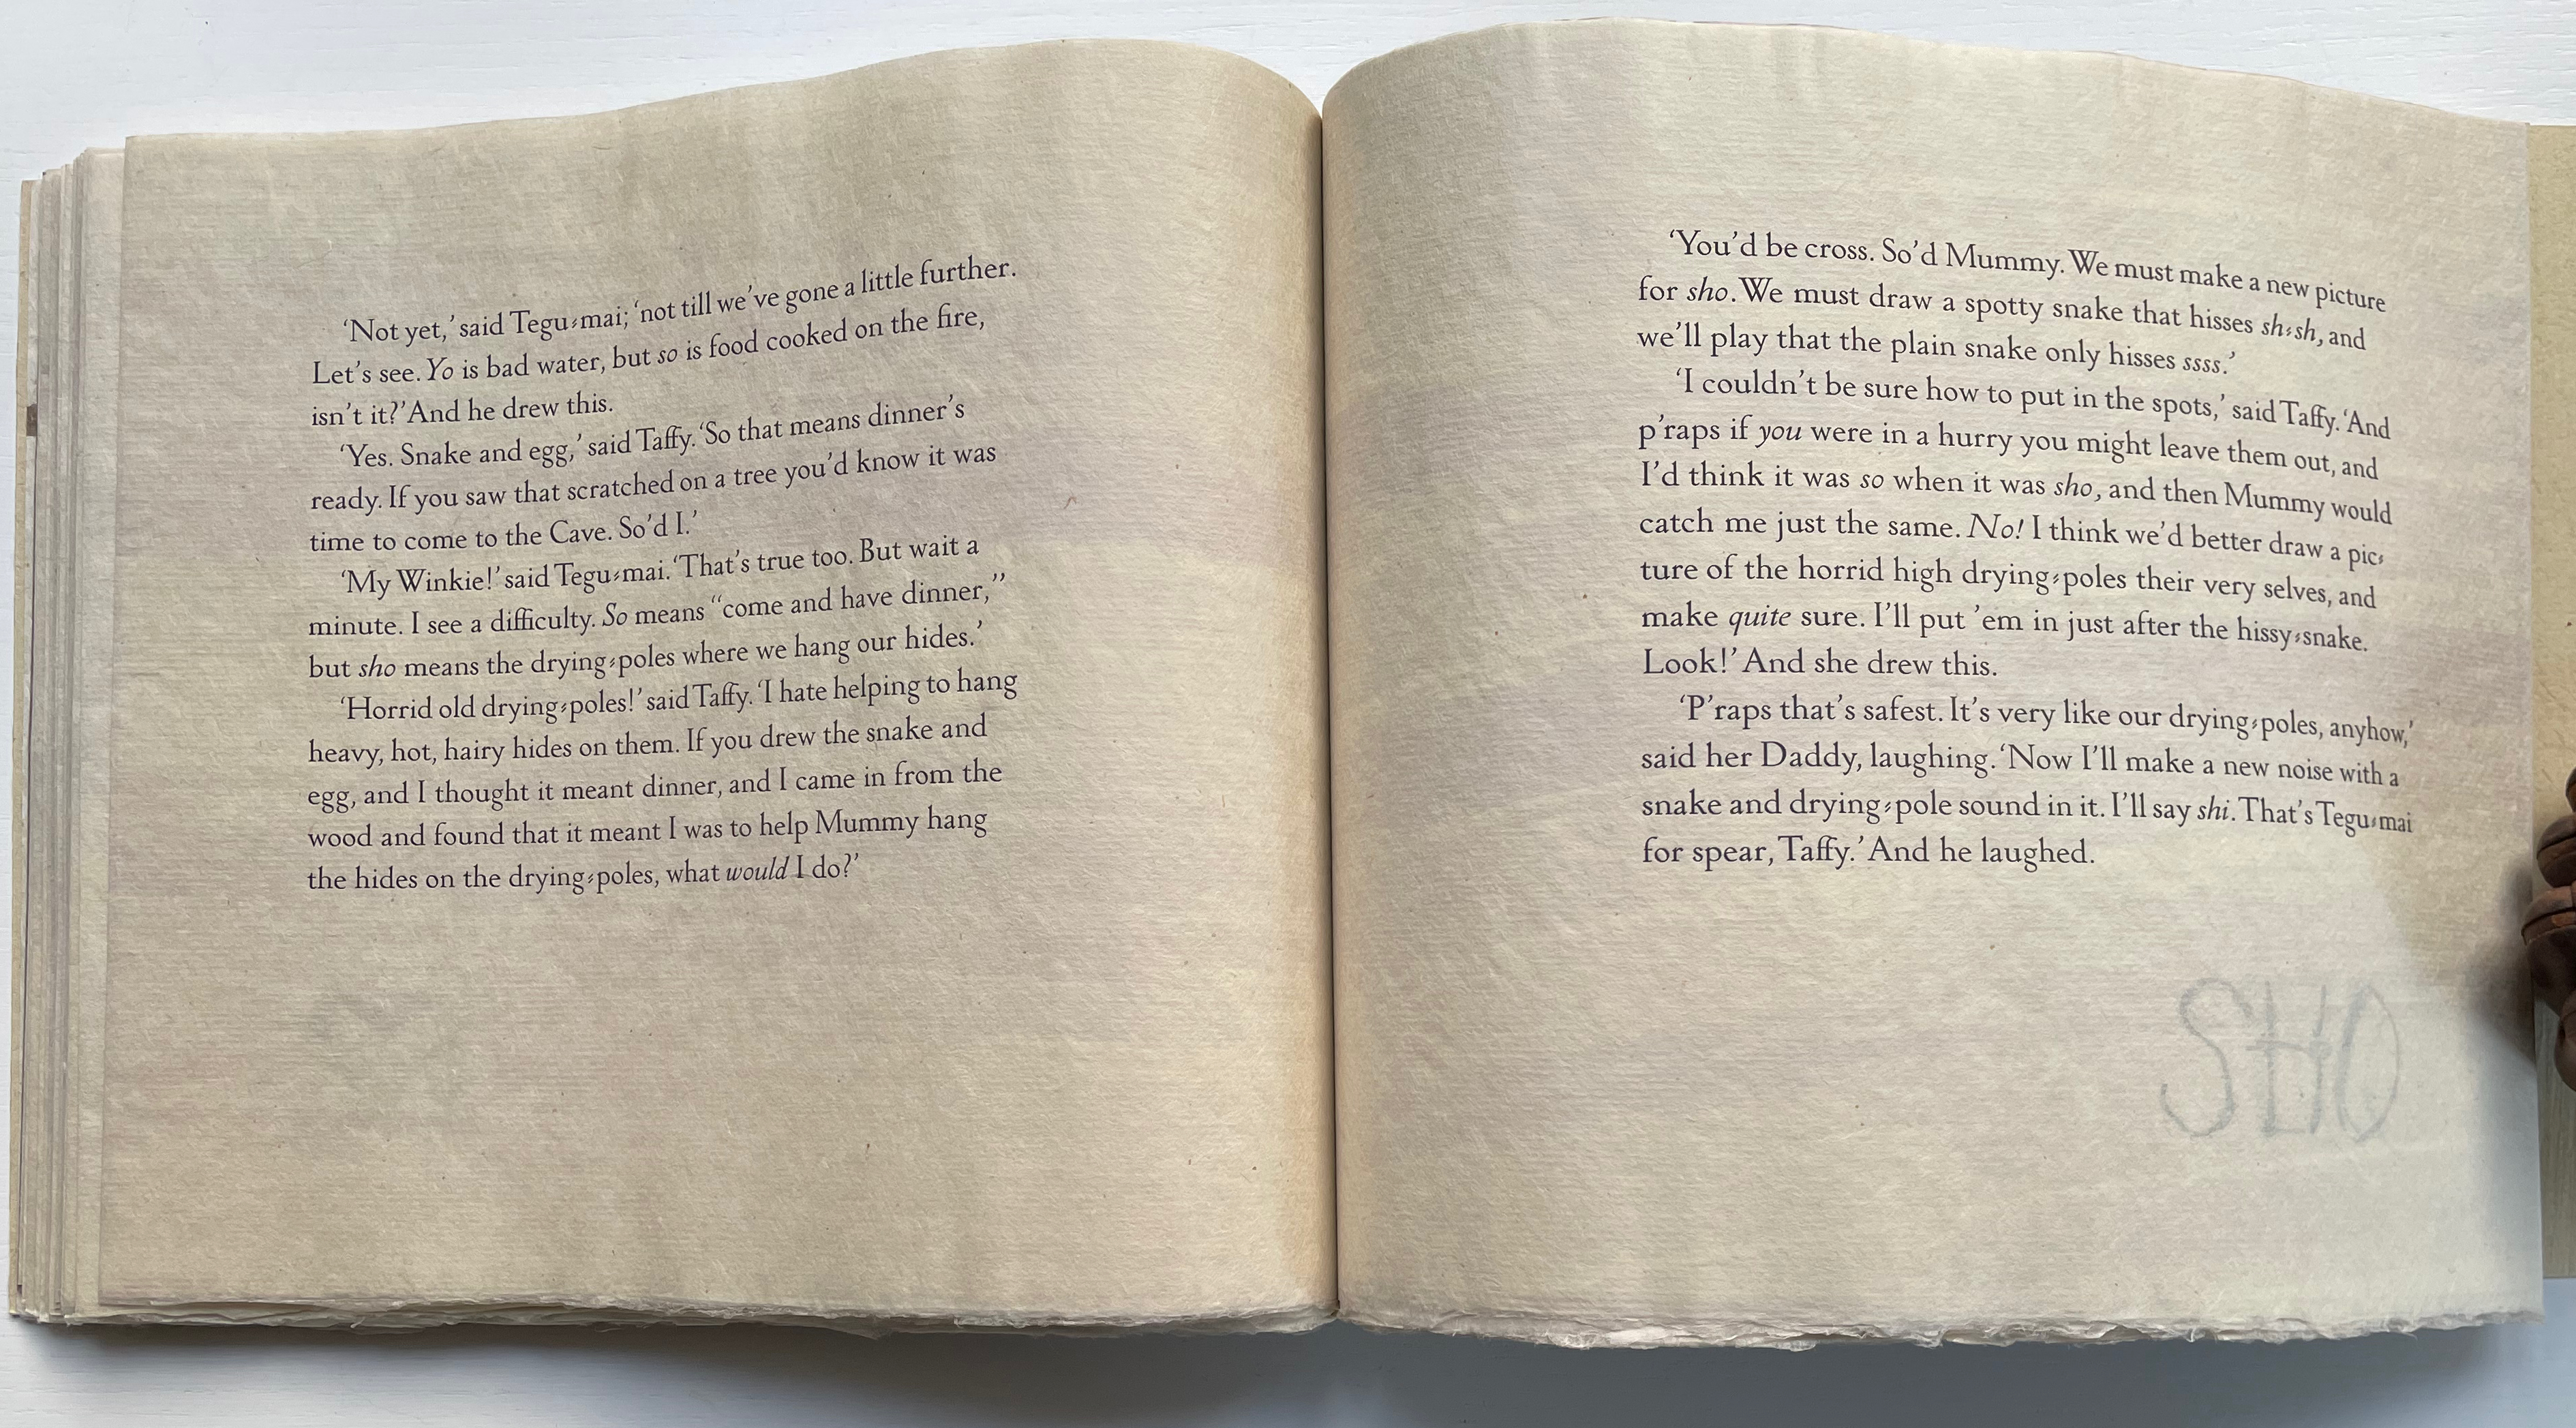 ‘Not yet,’ said Tegu-mai; ‘not till we’ve gone a little further.
Let’s see. Yo is bad water, but so is food cooked on the fire,
isn’t it?’ And he drew this.
‘Yes. Snake and egg,’ said Taffy. ‘So that means dinner’s
ready. If you saw that scratched on a tree you’d know it was
time to come to the Cave. So’d I.’
‘My Winkie!’ said Tegu-mai. ‘That’s true too. But wait a
minute. I see a difficulty. So means “come and have dinner,”
but sho means the drying-poles where we hang our hides.’
‘Horrid old drying-poles!’ said Taffy. ‘I hate helping to hang
heavy, hot, hairy hides on them. If you drew the snake and
egg, and I thought it meant dinner, and I came in from the
wood and found that it meant I was to help Mummy hang
the hides on the drying-poles, what would I do?’
‘You’d be cross. So’d Mummy. We must make a new picture
for sho. We must draw a spotty snake that hisses sh-sh, and
we’ll play that the plain snake only hisses ssss.’
‘I couldn’t be sure how to put in the spots,’ said Taffy. ‘And
p’raps if you were in a hurry you might leave them out, and
I’d think it was so when it was sho, and then Mummy would
catch me just the same. No! I think we’d better draw a pic-
ture of the horrid high drying-poles their very selves, and
make quite sure. I’ll put ’em in just after the hissy-snake.
Look!’ And she drew this.
‘P’raps that’s safest. It’s very like our drying-poles, anyhow,’
said her Daddy, laughing. ‘Now I’ll make a new noise with a
snake and drying-pole sound in it. I’ll say shi. That’s Tegu-mai
for spear, Taffy.’ And he laughed.
SHO